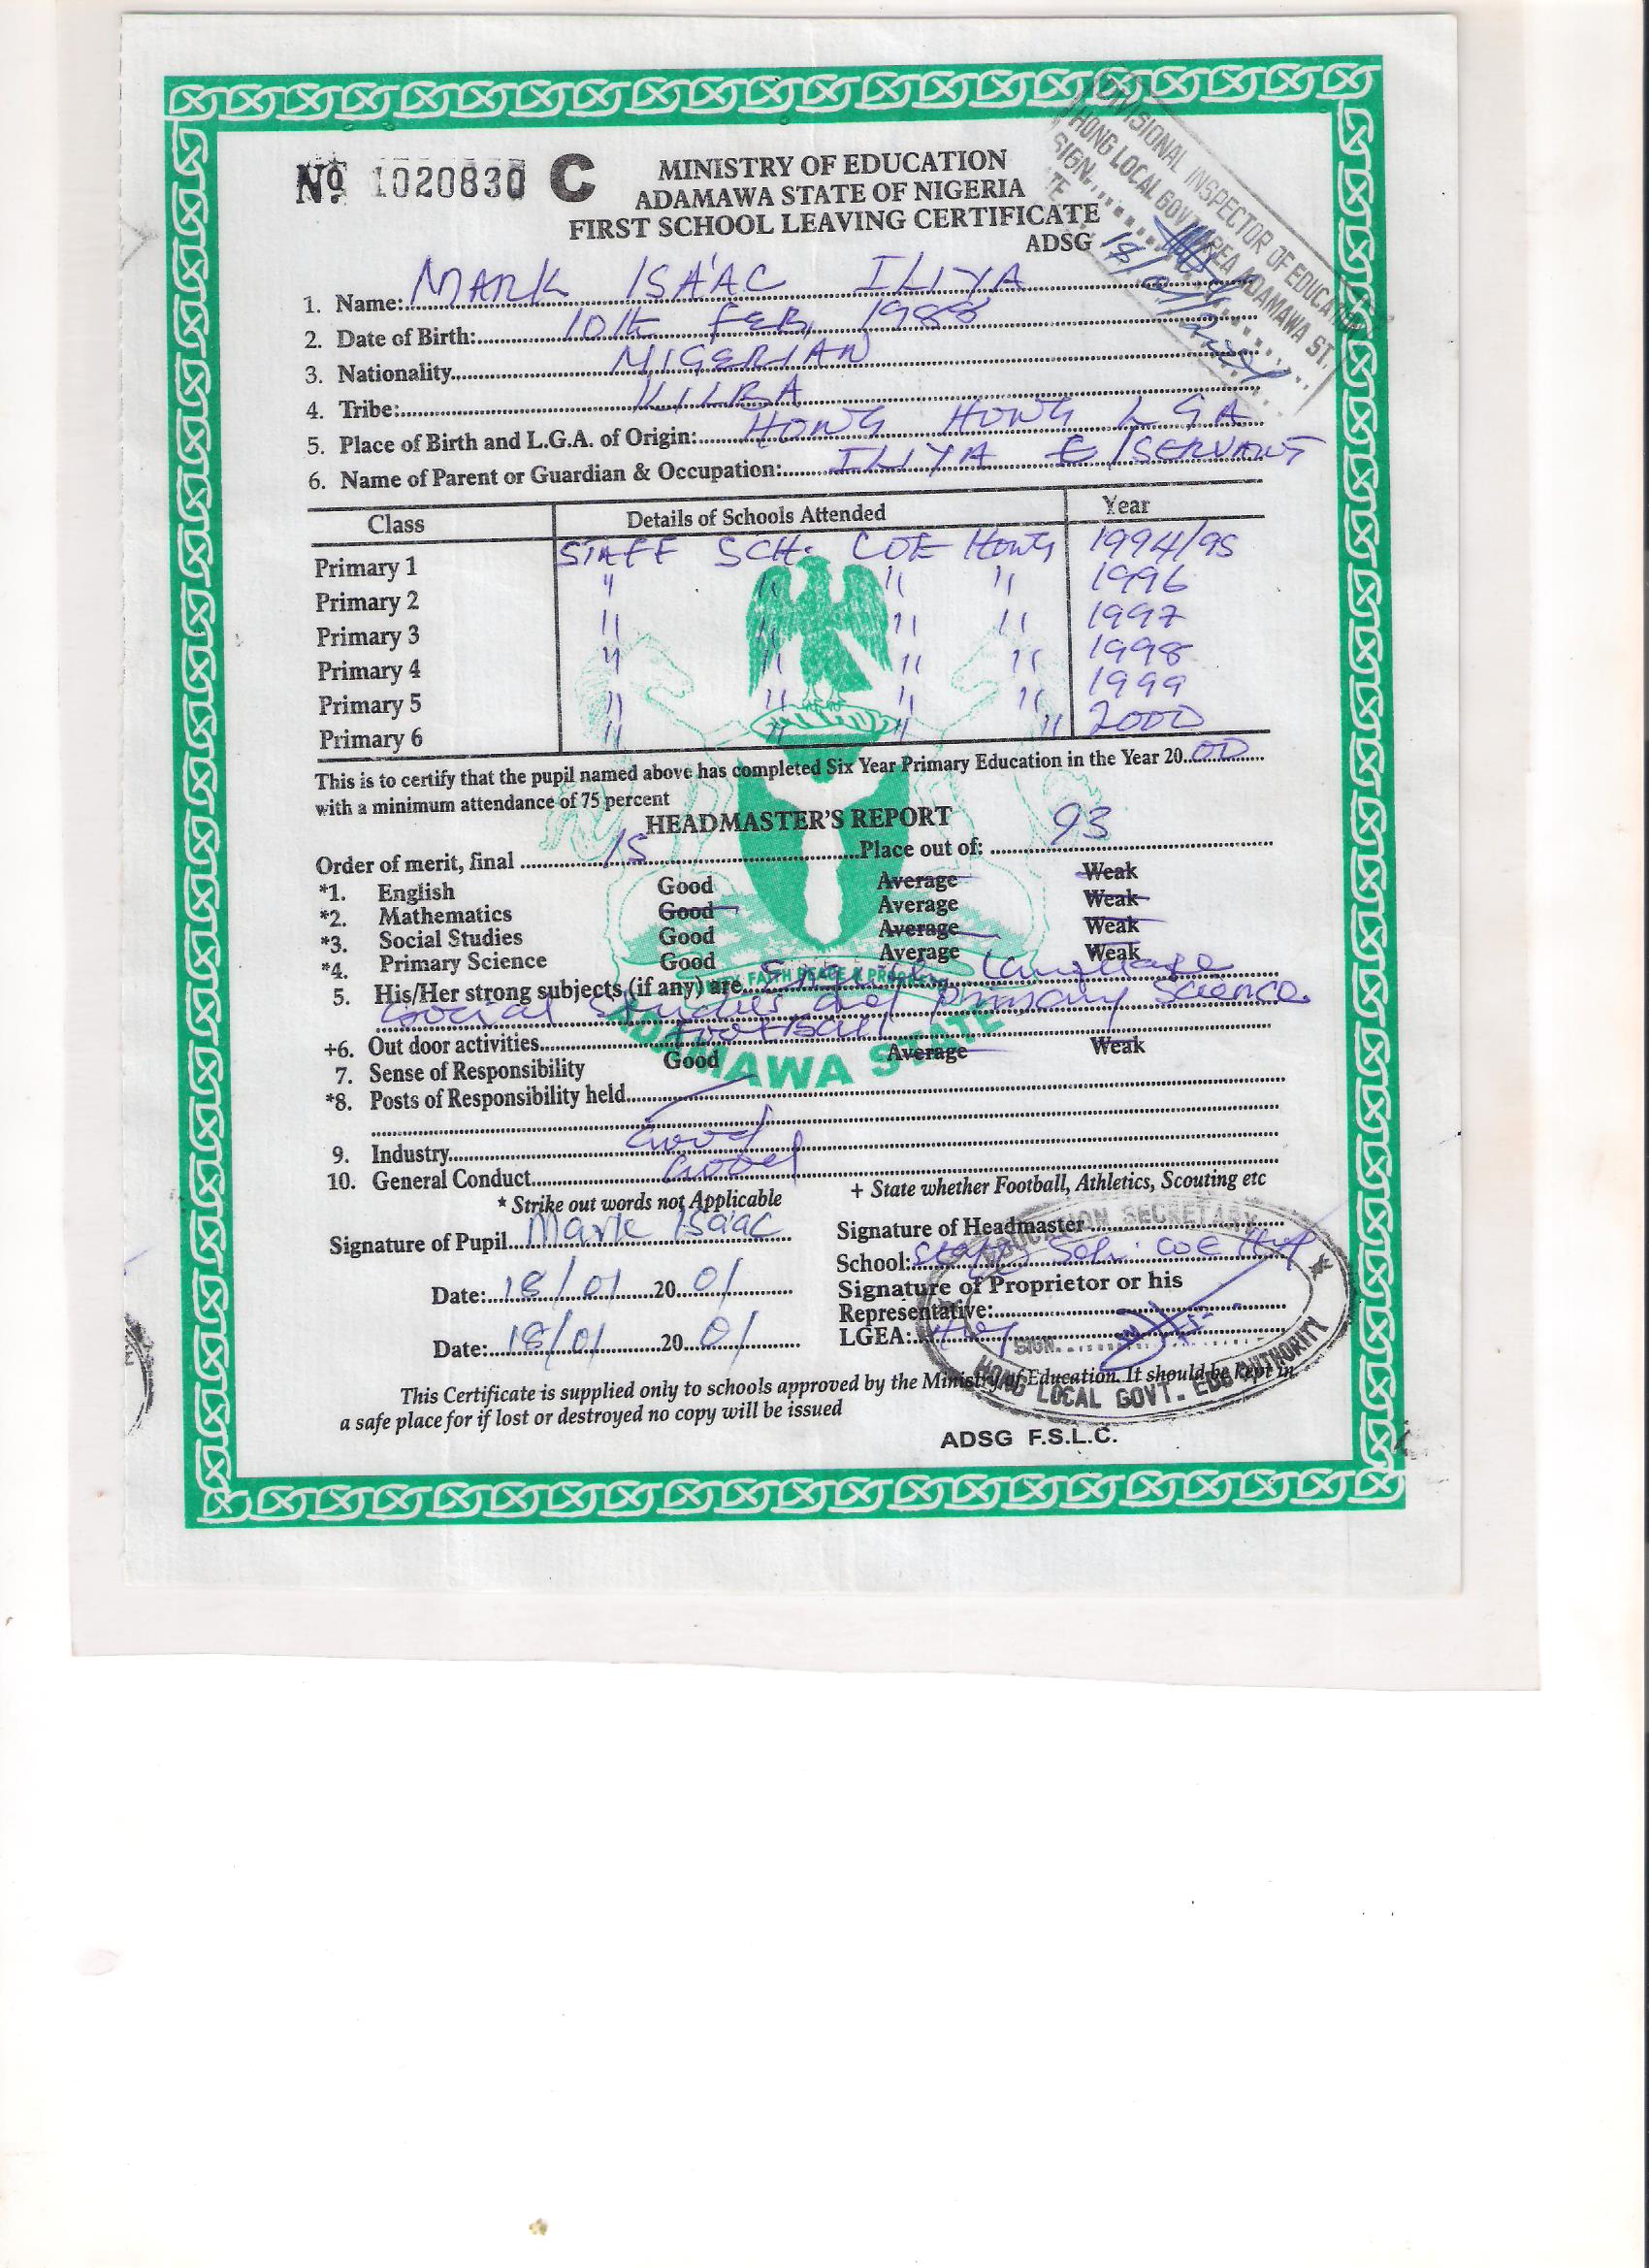 Nº 1020830 C
MINISTRY OF EDUCATION
ADAMAWA STATE OF NIGERIA
FIRST SCHOOL LEAVING CERTIFICATE
ADSG
DIVISIONAL INSPECTOR OF EDUCATION
HONG LOCAL GOVT AREA ADAMAWA ST.
SIGN.
1. Name: MARK ISA'AC ILIYA
2. Date of Birth: 10th FEB, 1988
3. Nationality NIGERIAN
4. Tribe: KILBA
5. Place of Birth and L.G.A. of Origin: HONG HONG LGA
6. Name of Parent or Guardian & Occupation: ILIYA E/SERVANT
Class Details of Schools Attended Year
Primary 1 STAFF SCH. COE HONG 1994/95
Primary 2 " " " " 1996
Primary 3 " " " " 1997
Primary 4 " " " " 1998
Primary 5 " " " " 1999
Primary 6 " " " " 2000
This is to certify that the pupil named above has completed Six Year Primary Education in the Year 20 00
with a minimum attendance of 75 percent
HEADMASTER'S REPORT
Order of merit, final 15 Place out of: 93
*1. English Good Average Weak
*2. Mathematics Good Average Weak
*3. Social Studies Good Average Weak
*4. Primary Science Good Average Weak
5. His/Her strong subjects (if any) are English Language
Social Studies and primary Science
FAITH PEACE & PROGRESS
+6. Out door activities FootBall
7. Sense of Responsibility Good Average Weak
ADAMAWA STATE
*8. Posts of Responsibility held
9. Industry Good
10. General Conduct Good
* Strike out words not Applicable + State whether Football, Athletics, Scouting etc
Signature of Pupil Mark Isaac Signature of Headmaster
School: Staff Sch. COE
Date: 18/01 20 01 Signature of Proprietor or his
Representative:
Date: 18/01 20 01 LGEA:
EDUCATION SECRETARY
SIGN.
HONG LOCAL GOVT. EDU AUTHORITY
This Certificate is supplied only to schools approved by the Ministry of Education. It should be kept in
a safe place for if lost or destroyed no copy will be issued
ADSG F.S.L.C.